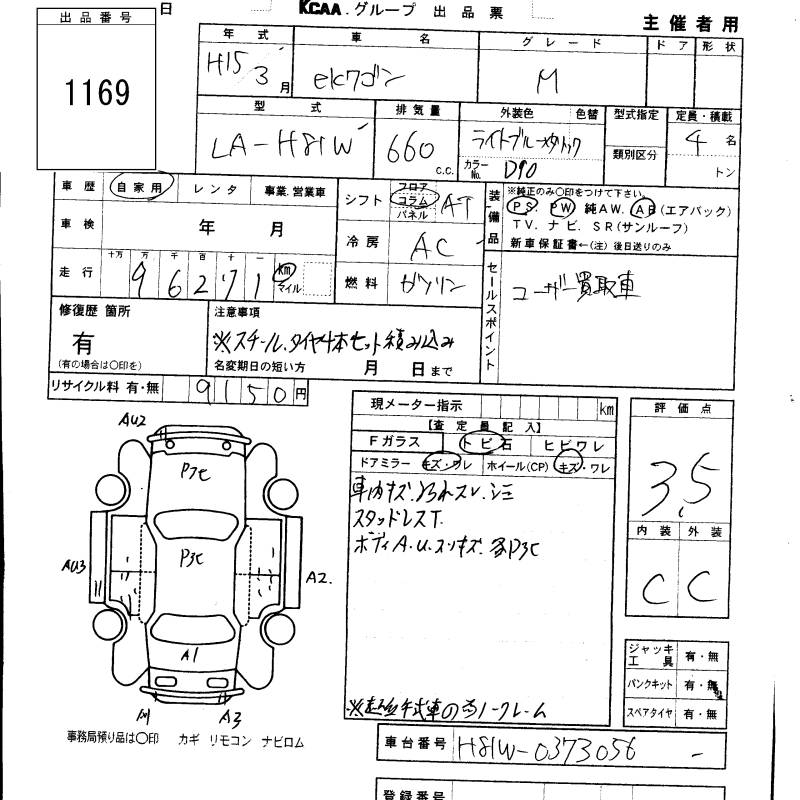 日 KCAA.グループ 出品票 主催者用
出品番号
1169
年式 車名 グレード ドア 形状
H15 3月 ekワゴン M
型式 排気量 外装色 色替 型式指定 定員・積載
LA-H81W 660 c.c. ライトブルーメタリック カラーNo. D90 類別区分 4名 トン
車歴 自家用 レンタ 事業.営業車
車検 年 月
走行 十万 万 千 百 十 一
96271 km マイル
シフト フロア コラム パネル AT
冷房 AC
燃料 ガソリン
装備品 ※純正のみ○印をつけて下さい。
PS. PW 純AW. AB(エアバック)
TV. ナビ. SR(サンルーフ)
新車保証書←(注)後日送りのみ
セールスポイント
ユーザー買取車
修復歴 箇所
有
(有の場合は○印を)
注意事項
※スチール、タイヤ4本セット積み込み
名変期日の短い方 月 日まで
リサイクル料 有・無 9150円
現メーター指示 km
【査定員記入】
Fガラス トビ石 ヒビワレ
ドアミラー キズ・ワレ ホイール(CP) キズ・ワレ
車内キズ.ヨゴレスレ.シミ
スタッドレスT.
ボディA.U.スリキズ.多P3C
年式車の為ノークレーム
評価点
3.5
内装 外装
C C
ジャッキ工具 有・無
パンクキット 有・無
スペアタイヤ 有・無
AU2
P7C
P3C
AU3
A2.
A1
A1
A3
事務局預り品は○印 カギ リモコン ナビロム
車台番号 H81W-0373056
登録番号